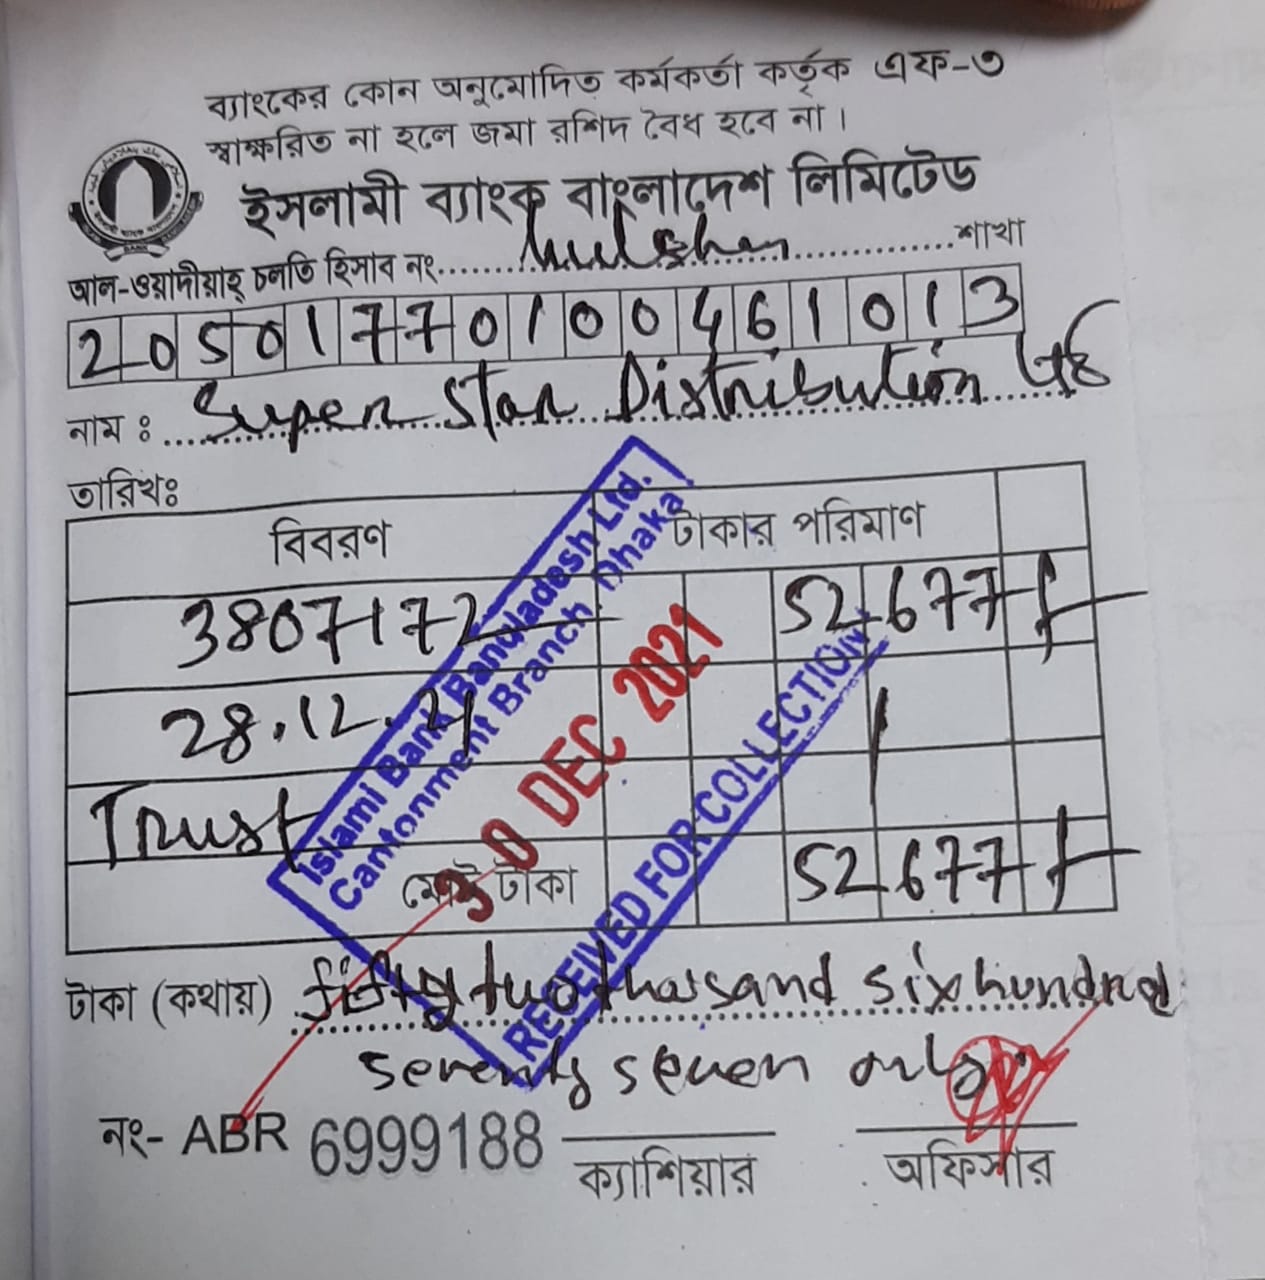 ব্যাংকের কোন অনুমোদিত কর্মকর্তা কর্তৃক এফ-৩
স্বাক্ষরিত না হলে জমা রশিদ বৈধ হবে না।
ইসলামী ব্যাংক বাংলাদেশ লিমিটেড
আল-ওয়াদীয়াহ্ চলতি হিসাব নং...... Gulshan ............শাখা
2 0 5 0 1 7 7 0 1 0 0 4 6 1 0 1 3
নাম : Super Star Distribution
তারিখঃ
বিবরণ টাকার পরিমাণ
3807172 52677
28.12.21
Trust
মোট টাকা 52677
Islami Bank Bangladesh Ltd.
Cantonment Branch Dhaka
30 DEC 2021
RECEIVED FOR COLLECTION
টাকা (কথায়) fifty two thousand six hundred
seventy seven only
নং- ABR 6999188
ক্যাশিয়ার অফিসার